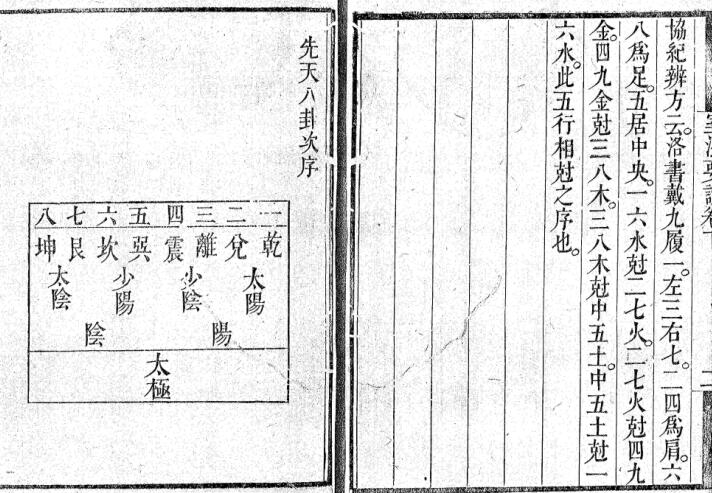 協紀辨方云。洛書戴九履一。左三右七。二四爲肩。六
八爲足。五居中央。一六水尅二七火。二七火尅四九
金。四九金尅三八木。三八木尅中五土。中五土尅一
六水。此五行相尅之序也。
先天八卦次序
一 二 三 四 五 六 七 八
乾 兌 離 震 巽 坎 艮 坤
太陽 少陰 少陽 太陰
陽 陰
太極